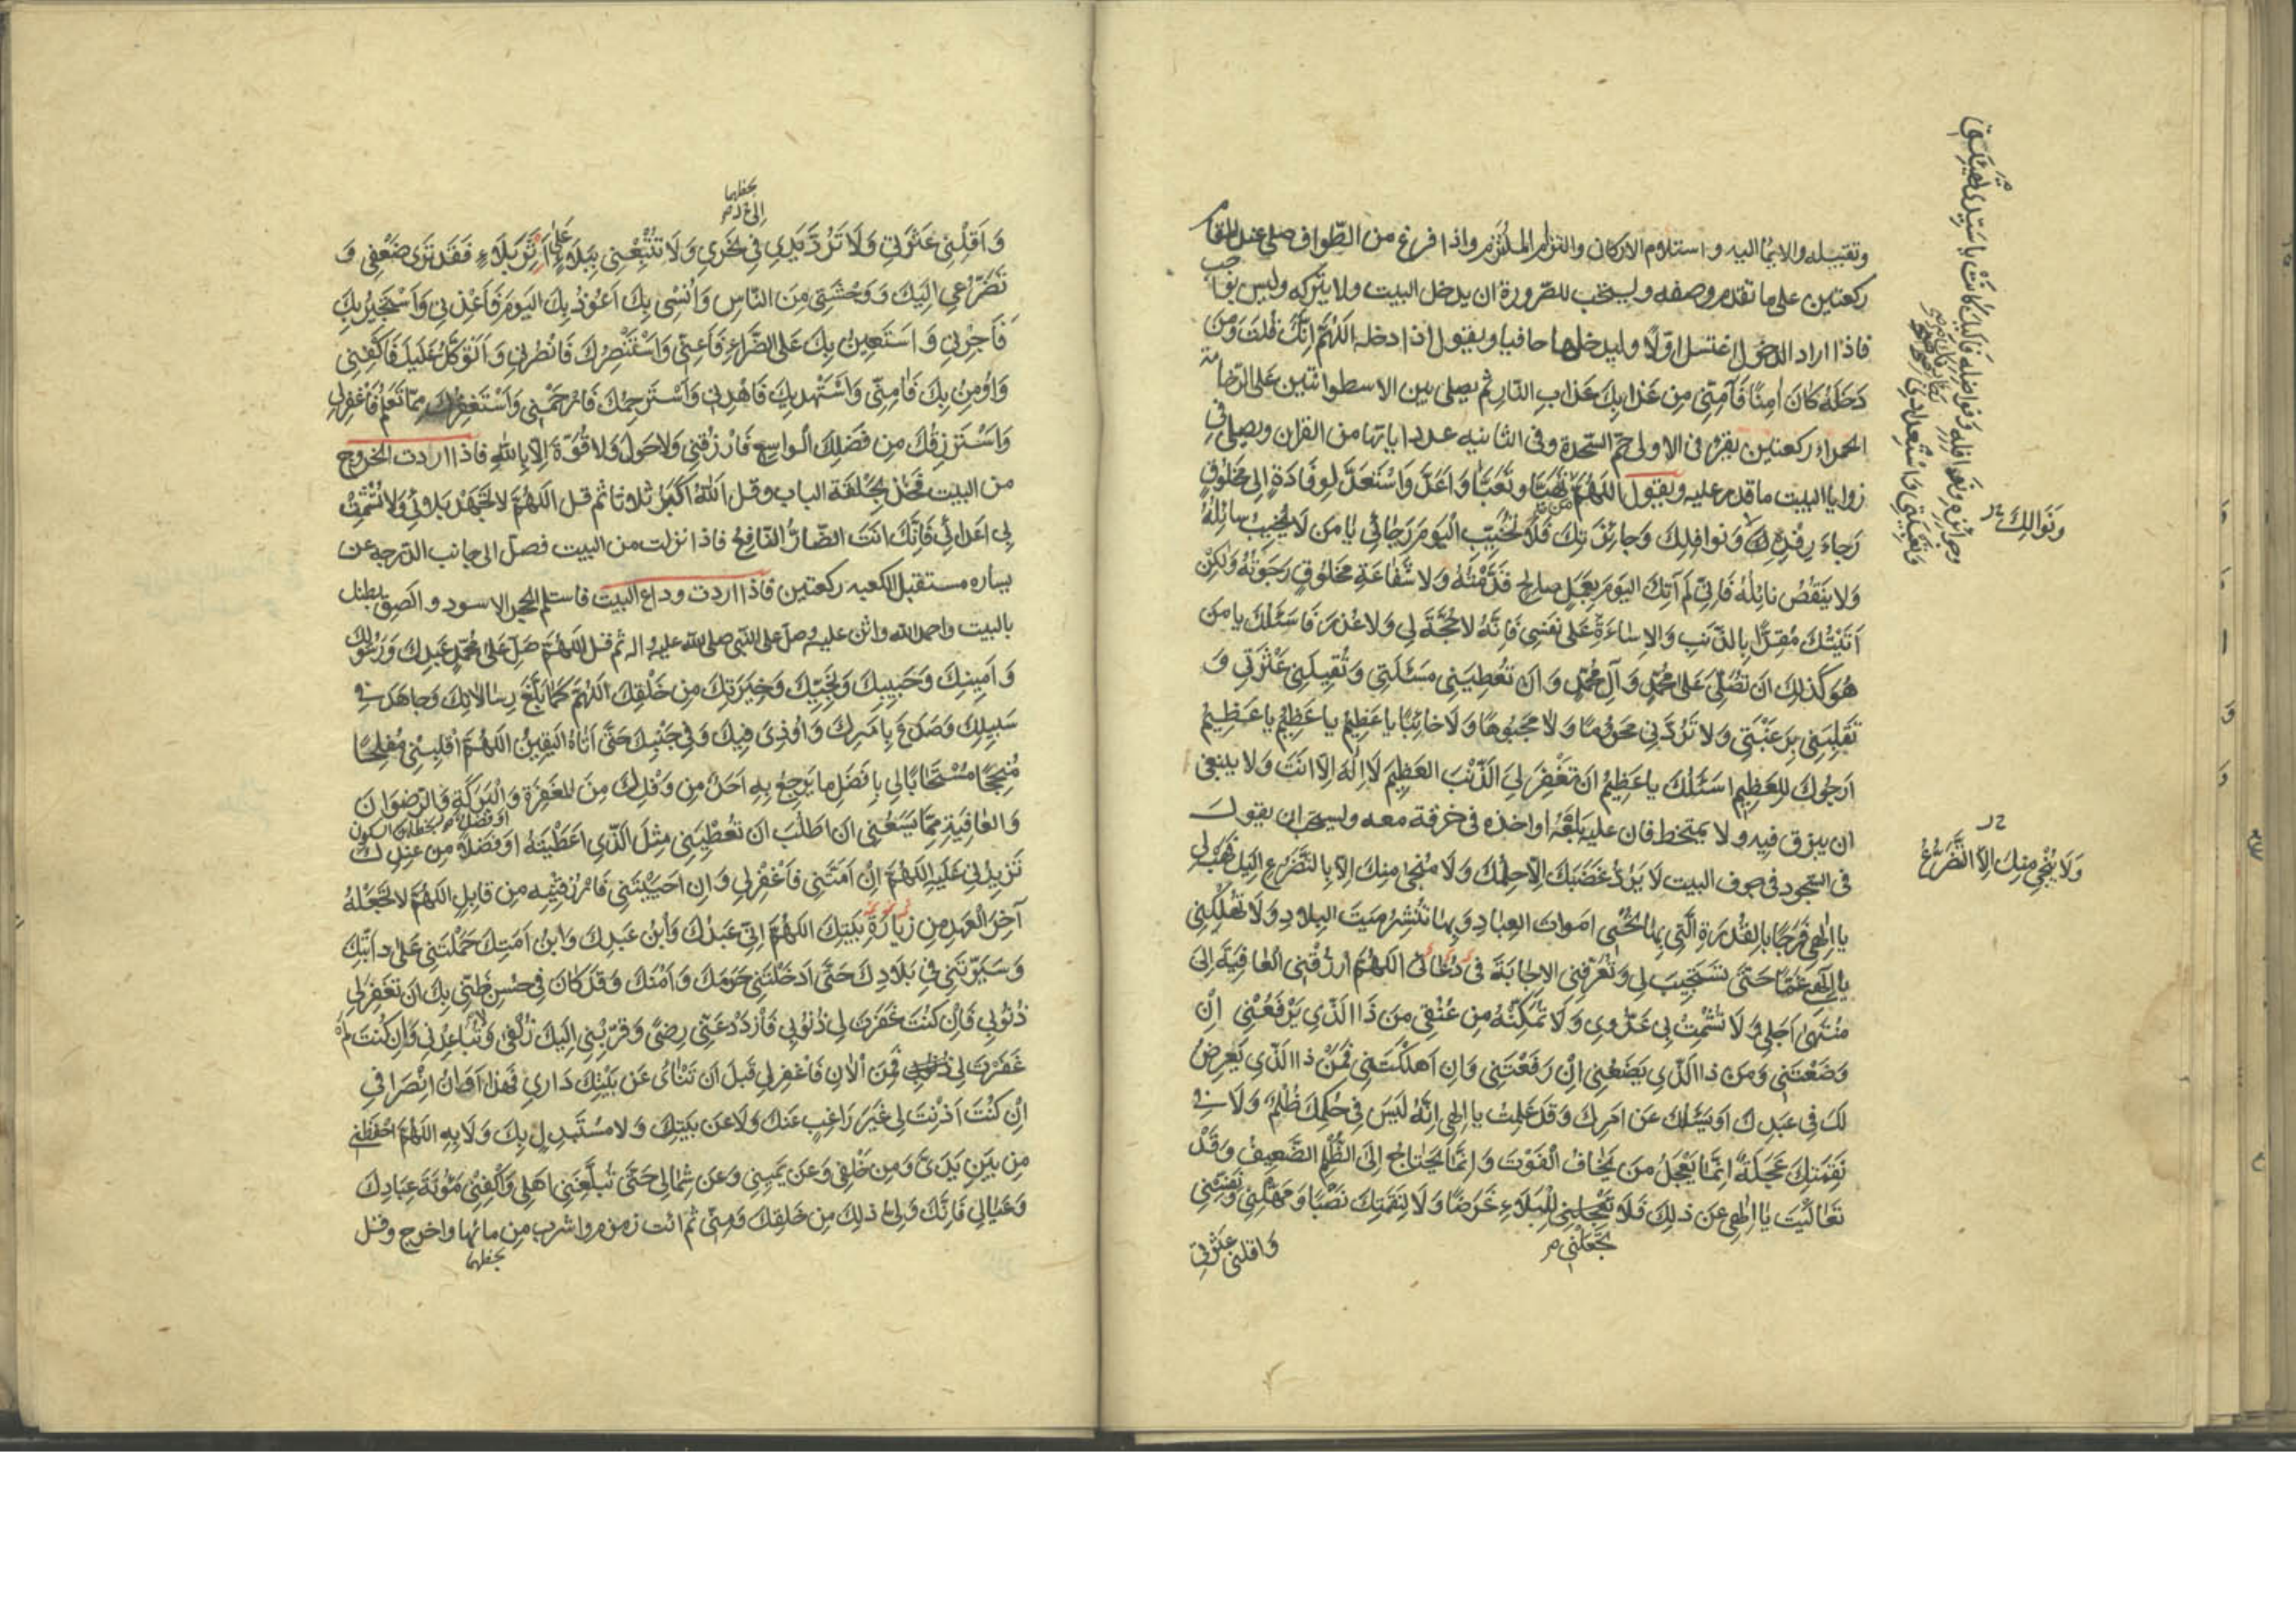 وتقبيله والايماء اليه واستلام الاركان والتزام الملتزم واذا فرغ من الطواف صلى عند المقام
ركعتين على ما تقدم وصفه ويستحب للصرورة ان يدخل البيت ولا يتركه وليس بواجب
فاذا اراد الدخول اغتسل اولًا وليدخلها حافيا ويقول اذا دخله اَللّٰهُمَّ اِنَّكَ قُلْتَ وَمَنْ
دَخَلَهُ كَانَ اٰمِنًا فَآمِنّي مِنْ عَذابِكَ عَذابِ النّارِ ثم يصلى بين الاسطوانتين على الرخامة
الحمراء ركعتين يقرء فى الاولى حم السجدة وفى الثانيه عدد اياتها من القران ويصلى في
زوايا البيت ما قدر عليه ويقول اَللّٰهُمَّ مَنْ تَهَيَّأَ وَتَعَبَّأَ وَاَعَدَّ وَاسْتَعَدَّ لِوِفادَةٍ اِلى مَخْلُوقٍ
رَجاءَ رِفْدِهِ وَنَوافِلِكَ وَجائِزَتِكَ فَلا تُخَيِّبِ الْيَوْمَ رَجائي يا مَنْ لا يُخَيَّبُ سائِلُهُ
وَلا يَنْقُصُ نائِلُهُ فَاِنّي لَمْ آتِكَ الْيَوْمَ بِعَمَلٍ صالِحٍ قَدَّمْتُهُ وَلا شَفاعَةِ مَخْلُوقٍ رَجَوْتُهُ وَلٰكِنّي
اَتَيْتُكَ مُقِرًّا بِالذَّنْبِ وَالاِساءَةِ عَلى نَفْسي فَاِنَّهُ لا حُجَّةَ لي وَلا عُذْرَ فَاَسْئَلُكَ يا مَنْ
هُوَ كَذلِكَ اَنْ تُصَلِّيَ عَلى مُحَمَّدٍ وَآلِ مُحَمَّدٍ وَاَنْ تُعْطِيَني مَسْئَلَتي وَتُقيلَني عَثْرَتي وَ
تَقْلِبَني بِرَغْبَتي وَلا تَرُدَّني مَحْرُومًا وَلا مَجْبُوهًا وَلا خائِبًا يا عَظيمُ يا عَظيمُ يا عَظيمُ
اَرْجُوكَ لِلْعَظيمِ اَسْئَلُكَ يا عَظيمُ اَنْ تَغْفِرَ لِيَ الذَّنْبَ الْعَظيمَ لا اِلٰهَ اِلّا اَنْتَ وَلا ينبغى
ان يبزق فيه ولا يمتخط فان عليه بلعه او اخذه فى خرقة معه ويستحب ان يقول
فى السجود فى جوف البيت لا يَرُدُّ غَضَبَكَ اِلّا حِلْمُكَ وَلا مَنْجى مِنْكَ اِلّا بِالتَّضَرُّعِ اِلَيْكَ فَهَبْ لي
يا اِلٰهي فَرَجًا بِالْقُدْرَةِ الَّتي بِها تُحْيي اَمْواتَ الْعِبادِ وَبِها تَنْشُرُ مَيْتَ الْبِلادِ وَلا تُهْلِكْني
يا اِلٰهي غَمًّا حَتّى تَسْتَجيبَ لي وَتُعَرِّفَني الاِجابَةَ في دُعائي اَللّٰهُمَّ ارْزُقْني الْعافِيَةَ اِلى
مُنْتَهى اَجَلي وَلا تُشْمِتْ بي عَدُوّي وَلا تُمَكِّنْهُ مِنْ عُنُقي مَنْ ذَا الَّذي يَرْفَعُني اِنْ
وَضَعْتَني وَمَنْ ذَا الَّذي يَضَعُني اِنْ رَفَعْتَني وَاِنْ اَهْلَكْتَني فَمَنْ ذَا الَّذي يَعْرِضُ
لَكَ في عَبْدِكَ اَوْ يَسْئَلُكَ عَنْ اَمْرِكَ وَقَدْ عَلِمْتُ يا اِلٰهي اِنَّهُ لَيْسَ في حُكْمِكَ ظُلْمٌ وَلا في
نَقِمَتِكَ عَجَلَةٌ اِنَّما يَعْجَلُ مَنْ يَخافُ الْفَوْتَ وَاِنَّما يَحْتاجُ اِلَى الظُّلْمِ الضَّعيفُ وَقَدْ
تَعالَيْتَ يا اِلٰهي عَنْ ذلِكَ فَلا تَجْعَلْني لِلْبَلاءِ غَرَضًا وَلا لِنَقِمَتِكَ نَصَبًا وَمَهِّلْني وَنَفِّسْني
تَجْعَلْني
وَاقلني عَثْرَتي
وَنَوالِكَ
وَلا يُنْجي مِنْكَ اِلّا التَّضَرُّعُ
وجوائزه ونوافله وفواضله فَاِلَيْكَ كانَتْ يا سَيِّدي تَهْيِئَتي
وَتَعْبِئَتي وَاسْتِعْدادي
وَاَقِلْني عَثْرَتي وَلا تَرُدَّ يَدي في نَحْري وَلا تُتْبِعْني بِبَلاءٍ عَلى اَثَرِ بَلاءٍ فَقَدْ تَرى ضَعْفي وَ
تَضَرُّعي اِلَيْكَ وَوَحْشَتي مِنَ النّاسِ وَاُنْسي بِكَ اَعُوذُ بِكَ الْيَوْمَ فَاَعِذْني وَاَسْتَجيرُ بِكَ
فَاَجِرْني وَاَسْتَعينُ بِكَ عَلَى الضَّرّاءِ فَاَعِنّي وَاَسْتَنْصِرُكَ فَانْصُرْني وَاَتَوَكَّلُ عَلَيْكَ فَاكْفِني
وَاُومِنُ بِكَ فَآمِنّي وَاَسْتَهْديكَ فَاهْدِني وَاَسْتَرْحِمُكَ فَارْحَمْني وَاَسْتَغْفِرُكَ مِمّا تَعْلَمُ فَاغْفِرْ لي
وَاَسْتَرْزِقُكَ مِنْ فَضْلِكَ الْواسِعِ فَارْزُقْني وَلا حَوْلَ وَلا قُوَّةَ اِلّا بِاللهِ فاذا اردت الخروج
من البيت فخذ بحلقة الباب وقل اَللهُ اَكْبَرُ ثلاثا ثم قل اَللّٰهُمَّ لا تَجْهَدْ بَلائي وَلا تُشْمِتْ
بي اَعْدائي فَاِنَّكَ اَنْتَ الضّارُّ النّافِعُ فاذا نزلت من البيت فصل الى جانب الدرجه عن
يساره مستقبل الكعبه ركعتين فاذا اردت وداع البيت فاستلم الحجر الاسود والصق بطنك
بالبيت واحمد الله واثن عليه وصل على النبي صلى الله عليه واله ثم قل اَللّٰهُمَّ صَلِّ عَلى مُحَمَّدٍ عَبْدِكَ وَرَسُولِكَ
وَاَمينِكَ وَحَبيبِكَ وَنَجِيِّكَ وَخِيَرَتِكَ مِنْ خَلْقِكَ اَللّٰهُمَّ كَما بَلَّغَ رِسالاتِكَ وَجاهَدَ في
سَبيلِكَ وَصَدَعَ بِاَمْرِكَ وَاُوذِيَ فيكَ وَفي جَنْبِكَ حَتّى اَتاهُ الْيَقينُ اَللّٰهُمَّ اَقْلِبْني مُفْلِحًا
مُنْجِحًا مُسْتَجابًا لي بِاَفْضَلِ ما يَرْجِعُ بِهِ اَحَدٌ مِنْ وَفْدِكَ مِنَ الْمَغْفِرَةِ وَالْبَرَكَةِ وَالرِّضْوانِ
وَالْعافِيَةِ مِمّا يَسَعُني اَنْ اَطْلُبَ اَنْ تُعْطِيَني مِثْلَ الَّذي اَعْطَيْتَهُ اَوْ فَضْلًا مِنْ عِنْدِكَ
تَزيدُني عَلَيْهِ اَللّٰهُمَّ اِنْ اَمَتَّني فَاغْفِرْ لي وَاِنْ اَحْيَيْتَني فَارْزُقْنيهِ مِنْ قابِلٍ اَللّٰهُمَّ لا تَجْعَلْهُ
آخِرَ الْعَهْدِ مِنْ زِيارَةِ بَيْتِكَ اَللّٰهُمَّ اِنّي عَبْدُكَ وَابْنُ عَبْدِكَ وَابْنُ اَمَتِكَ حَمَلْتَني عَلى دابَّتِكَ
وَسَيَّرْتَني في بِلادِكَ حَتّى اَدْخَلْتَني حَرَمَكَ وَاَمْنَكَ وَقَدْ كانَ في حُسْنِ ظَنّي بِكَ اَنْ تَغْفِرَ لي
ذُنُوبي فَاِنْ كُنْتَ غَفَرْتَ لي ذُنُوبي فَازْدَدْ عَنّي رِضًى وَقَرِّبْني اِلَيْكَ زُلْفى وَلا تُباعِدْني وَاِنْ كُنْتَ لَمْ
غَفَرْتَ لي فَمِنَ الْآنِ فَاغْفِرْ لي قَبْلَ اَنْ تَنْأى عَنْ بَيْتِكَ داري فَهذا اَوانُ انْصِرافي
اِنْ كُنْتَ اَذِنْتَ لي غَيْرَ راغِبٍ عَنْكَ وَلا عَنْ بَيْتِكَ وَلا مُسْتَبْدِلٍ بِكَ وَلا بِهِ اَللّٰهُمَّ احْفَظْني
مِنْ بَيْنِ يَدَيَّ وَمِنْ خَلْفي وَعَنْ يَميني وَعَنْ شِمالي حَتّى تُبَلِّغَني اَهْلي وَاكْفِني مَؤُنَةَ عِبادِكَ
وَعِيالي فَاِنَّكَ وَلِيُّ ذلِكَ مِنْ خَلْقِكَ وَمِنّي ثم ائت زمزم واشرب من مائها واخرج وقل